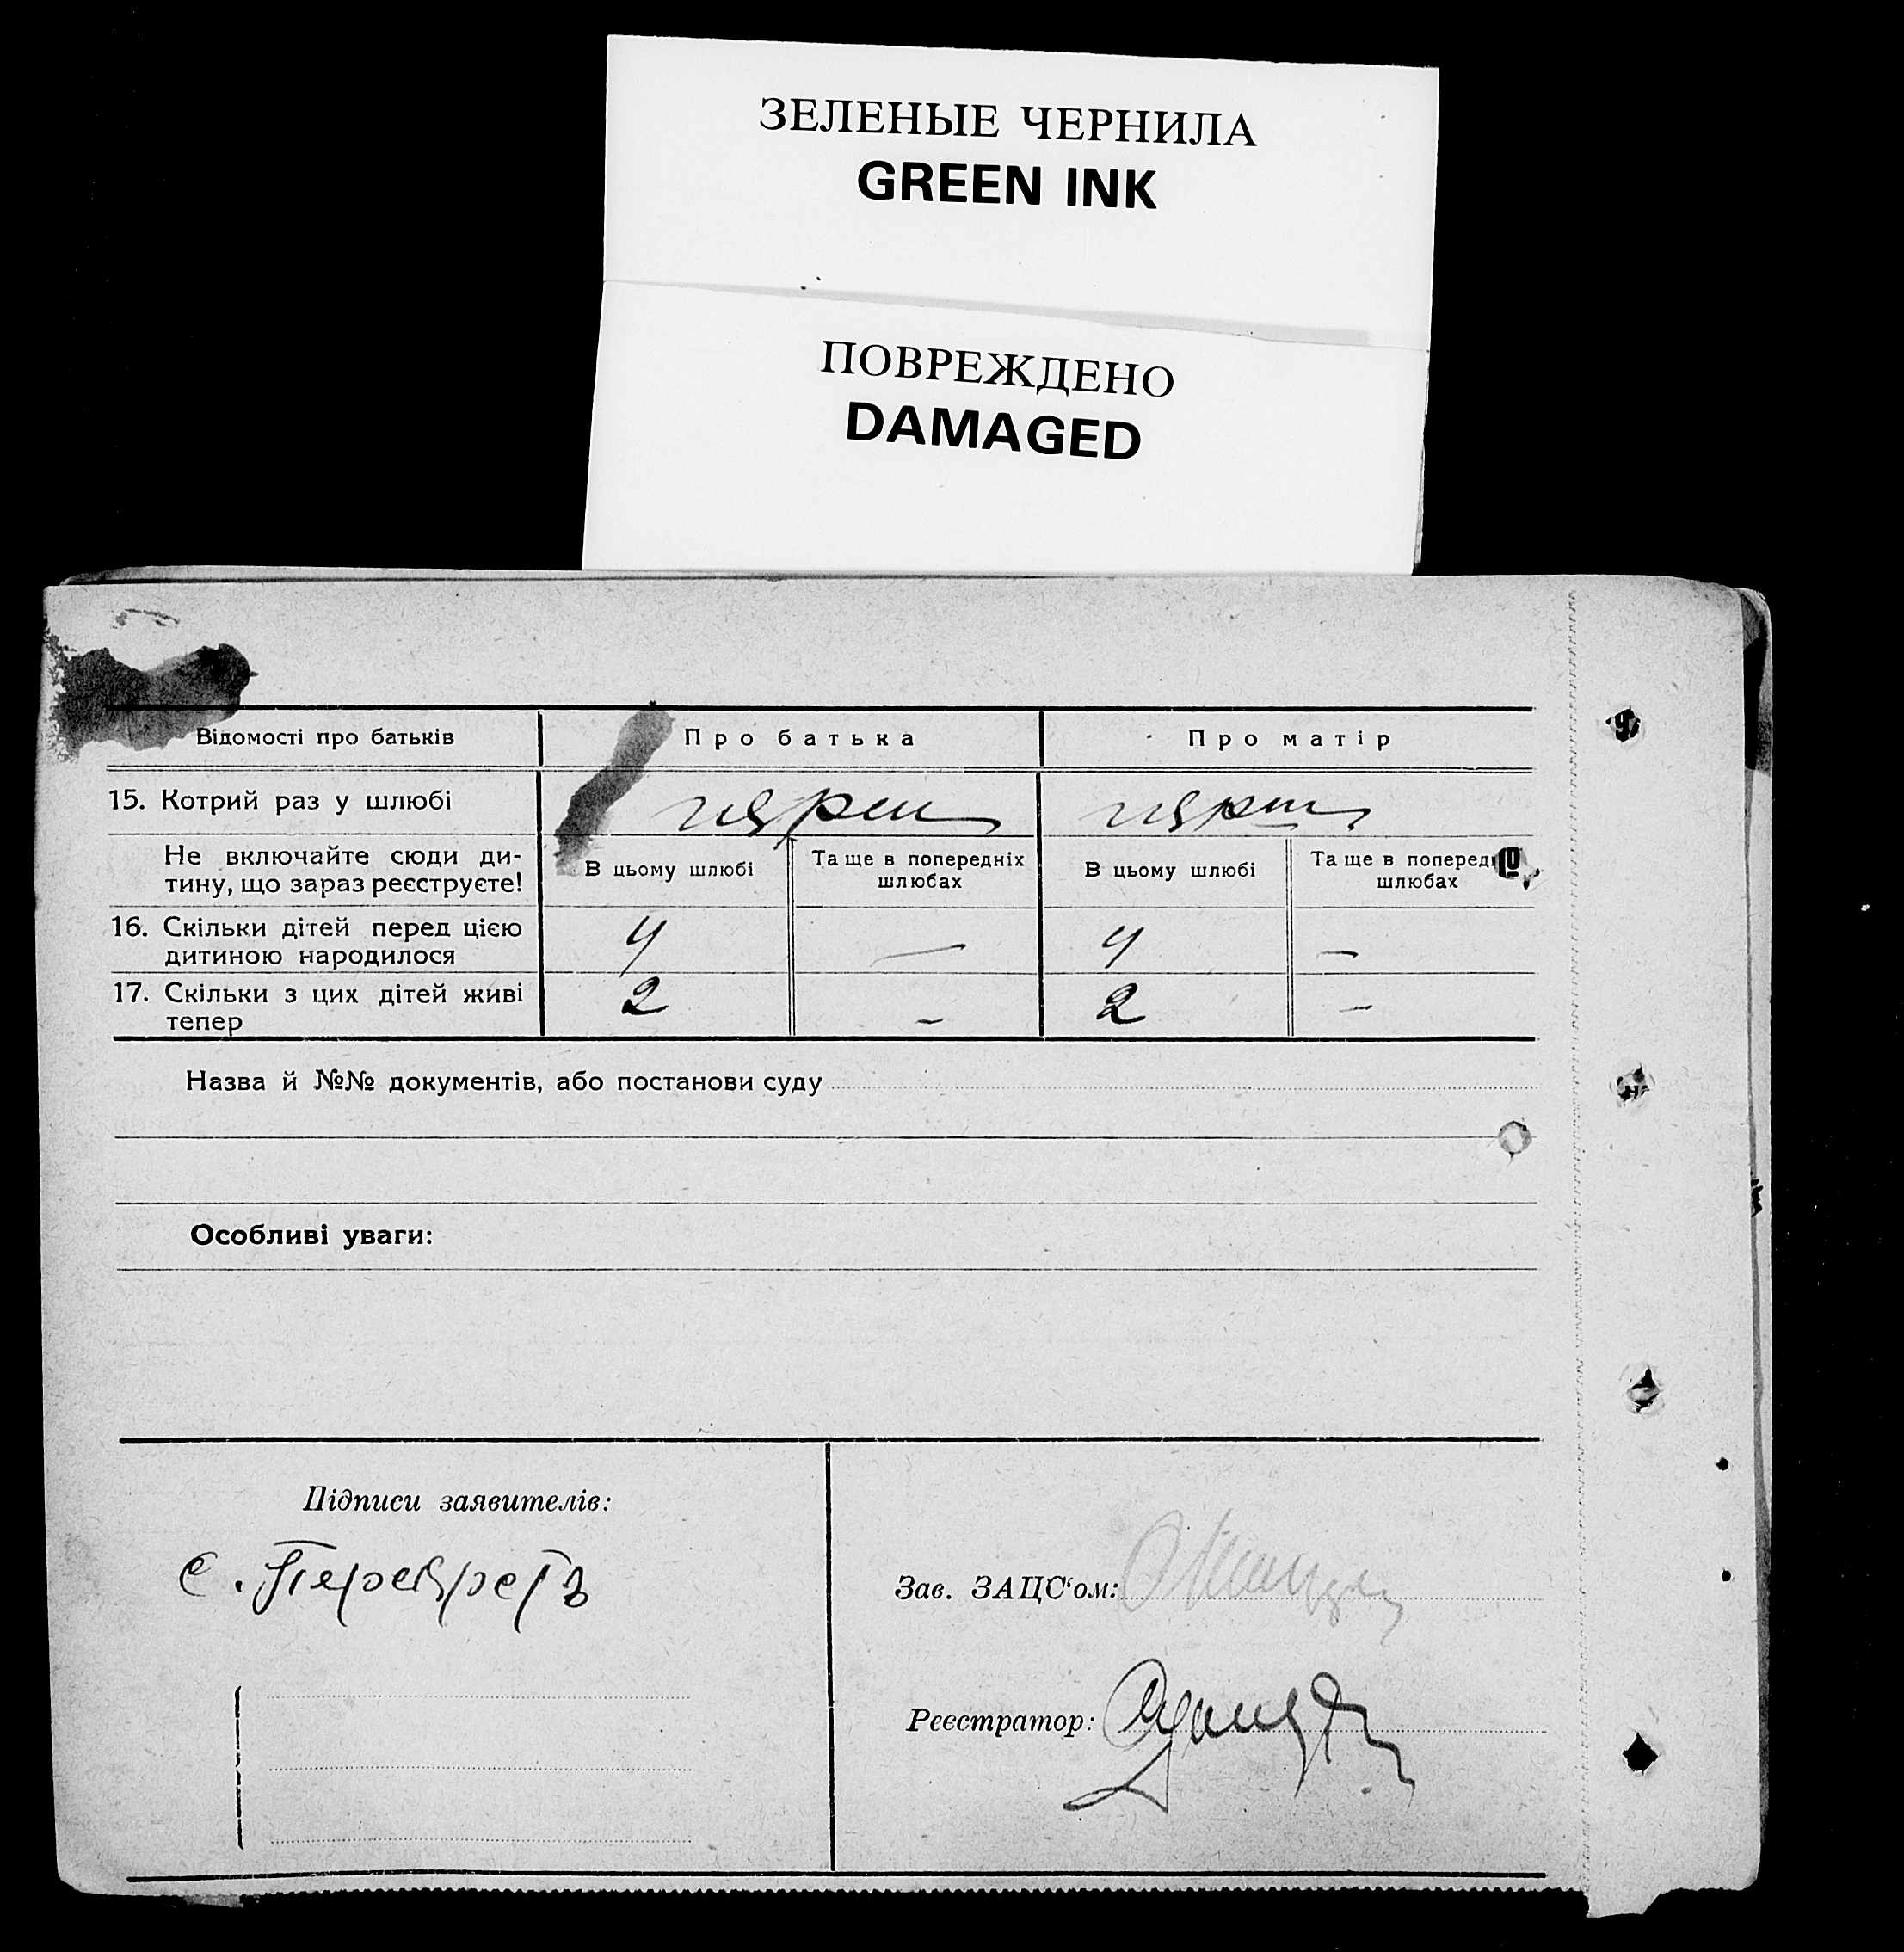 ЗЕЛЕНЫЕ ЧЕРНИЛА
GREEN INK
ПОВРЕЖДЕНО
DAMAGED
Відомості про батьків
Про батька
Про матір
15. Котрий раз у шлюбі
Не включайте сюди ди-
тину, що зараз реєструєте!
В цьому шлюбі
Та ще в попередніх
шлюбах
В цьому шлюбі
Та ще в поперед
шлюбах
16. Скільки дітей перед цією
дитиною народилося
4 — 4 —
17. Скільки з цих дітей живі
тепер
2 — 2 —
Назва й №№ документів, або постанови суду
Особливі уваги:
Підписи заявителів:
Зав. ЗАЦС‘ом:
Реєстратор: